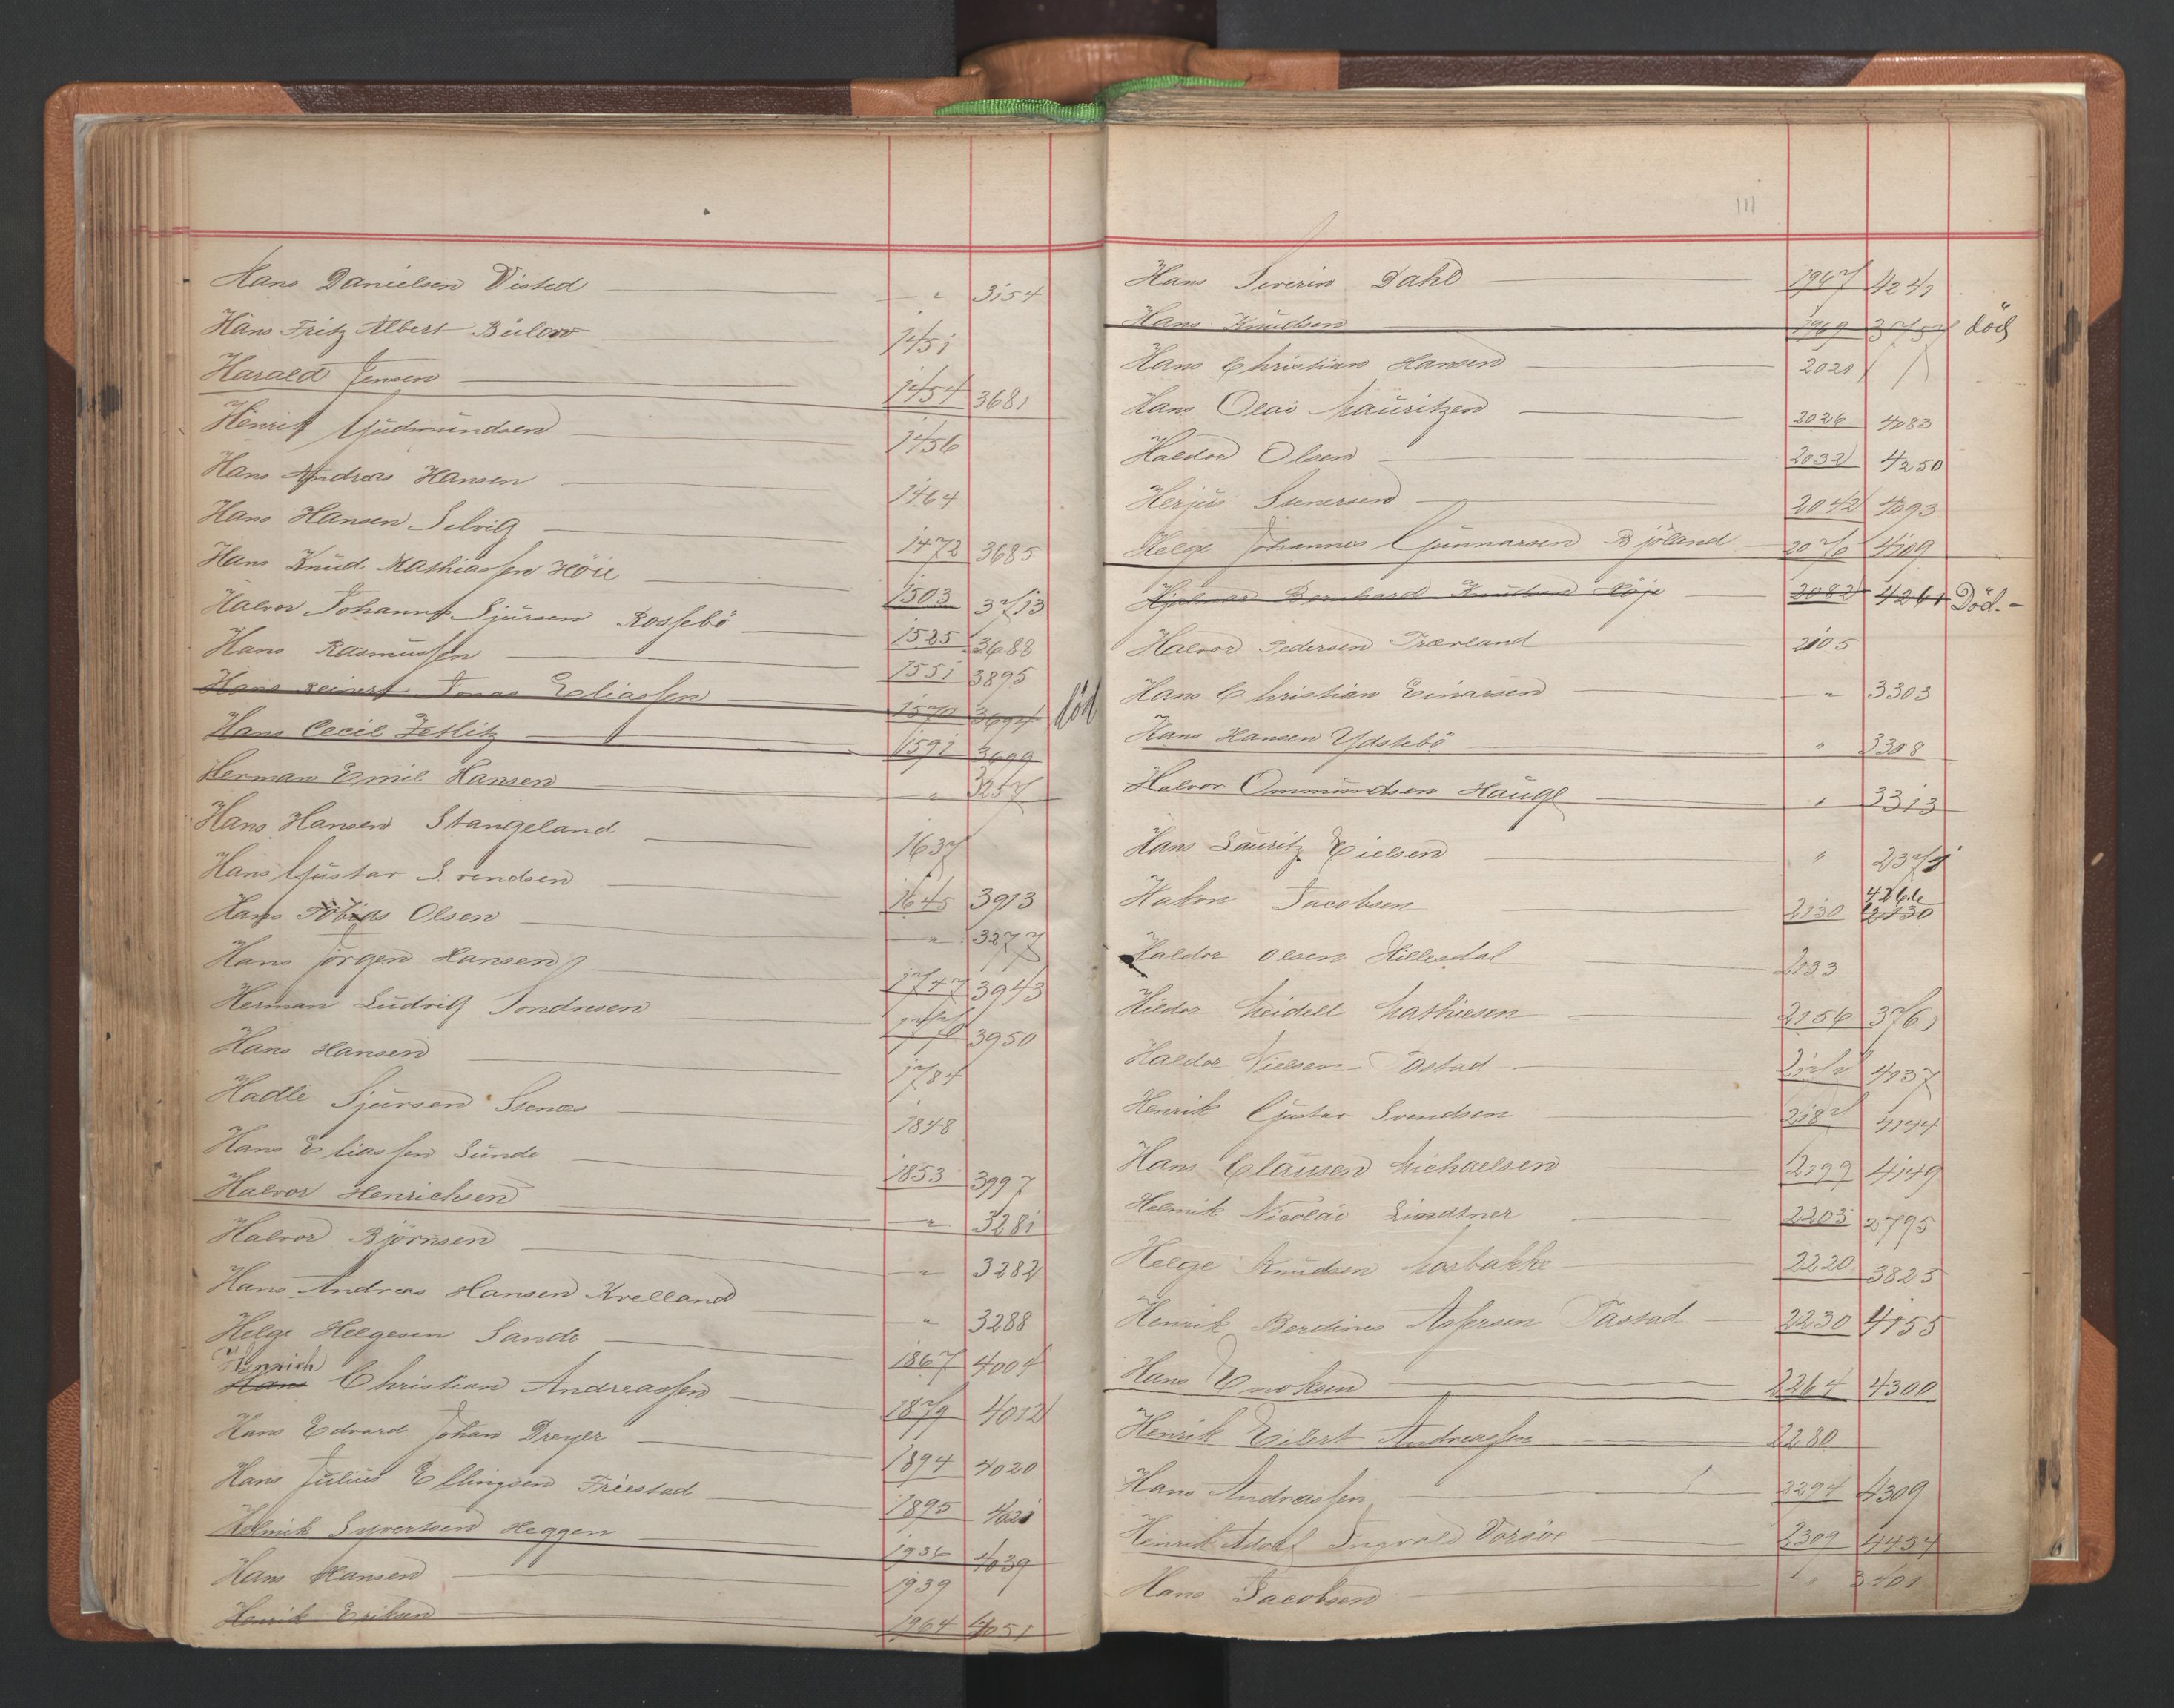 Hans Danielsen Visted — " 3154
Hans Fritz Albert Bülow — 1451
Harald Jensen — 1454 3681
Henrik Gudmundsen — 1456
Hans Andreas Hansen — 1464
Hans Hansen Selvig — 1472 3685
Hans Knud Mathiassen Höie — 1503 3713
Halvor Johannes Sjursen Rossebö — 1525 3688
Hans Rasmussen — 1551 3895
Hans Reinert Jonas Eliassen — 1570 3694 död
Hans Cecil Zetlitz — 1591 3699
Herman Emil Hansen — " 3257
Hans Hansen Stangeland — 1637
Hans Gustav Svendsen — 1645 3913
Hans Tobias Olsen — " 3277
Hans Jörgen Hansen — 1747 3943
Herman Ludvig Tondresen — 3950
Hans Hansen — 1784
Hadle Sjursen Stenes — 1848
Hans Eliassen Sunde — 1853 3997
Halvor Henrichsen — " 3281
Halvor Björnsen — " 3282
Hans Andreas Hansen Kvelland — " 3288
Helge Helgesen Sande — 1867 4004
Henrich
Hans Christian Andreassen — 1879 4012
Hans Edvard Johan Dreyer — 1894 4020
Hans Julius Ellingsen Friestad — 1895 4021
Helmik Syvertsen Heggen — 1936 4039
Hans Hansen — 1939
Henrik Eriksen — 1964 4051
111
Hans Severin Dahl — 1967 4241
Hans Knudsen — 1969 3757 död
Hans Christian Hansen — 2021
Hans Olai Mauritzen — 2026 4083
Haldor Olsen — 2032 4250
Herjus Sunersen — 2042 4093
Helge Johannes Gunnarsen Bjöland — 2070 4109
Hjalmar Bernhard Knudsen Höje — 2082 4261 Död.-
Halvor Pedersen Træland — 2105
Hans Christian Einarsen — " 3303
Hans Hansen Ydstebö — " 3308
Halvor Ommundsen Hauge — " 3313
Hans Lauritz Eielsen — " 2371
Hakon Jacobsen — 2130 4266 2130
Haldor Olsen Hillesdal — 2133
Hildor Meidell Mathiesen — 2156 3761
Haldor Nielsen Tastad — 2177 4137
Henrik Gustav Svendsen — 2187 4144
Hans Clausen Michaelsen — 2199 4149
Helmik Nicolai Lindtner — 2203 2795
Helge Knudsen Mosbakke — 2220 3825
Henrik Berdines Aspersen Tastad — 2230 4155
Hans Enoksen — 2264 4300
Henrik Eilert Andreassen — 2280
Hans Andreassen — 2294 4309
Henrik Adolf Ingvald Vorsöe — 2309 4454
Hans Jacobsen — " 3401